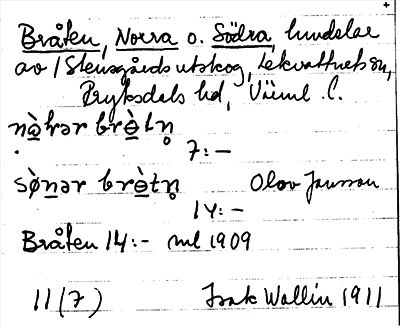 Bråten, Norra o. Södra, hemdelar
av /Stensgårds utskog, Lekvattnets sn,
Fryksdals hd, Värml. l.
nὰhər brὲtn̥
7:–
sø̀nər brὲtn̥ Olov Jansson
14:–
Bråten 14:- ml 1909
11(7) Isak Wallin 1911